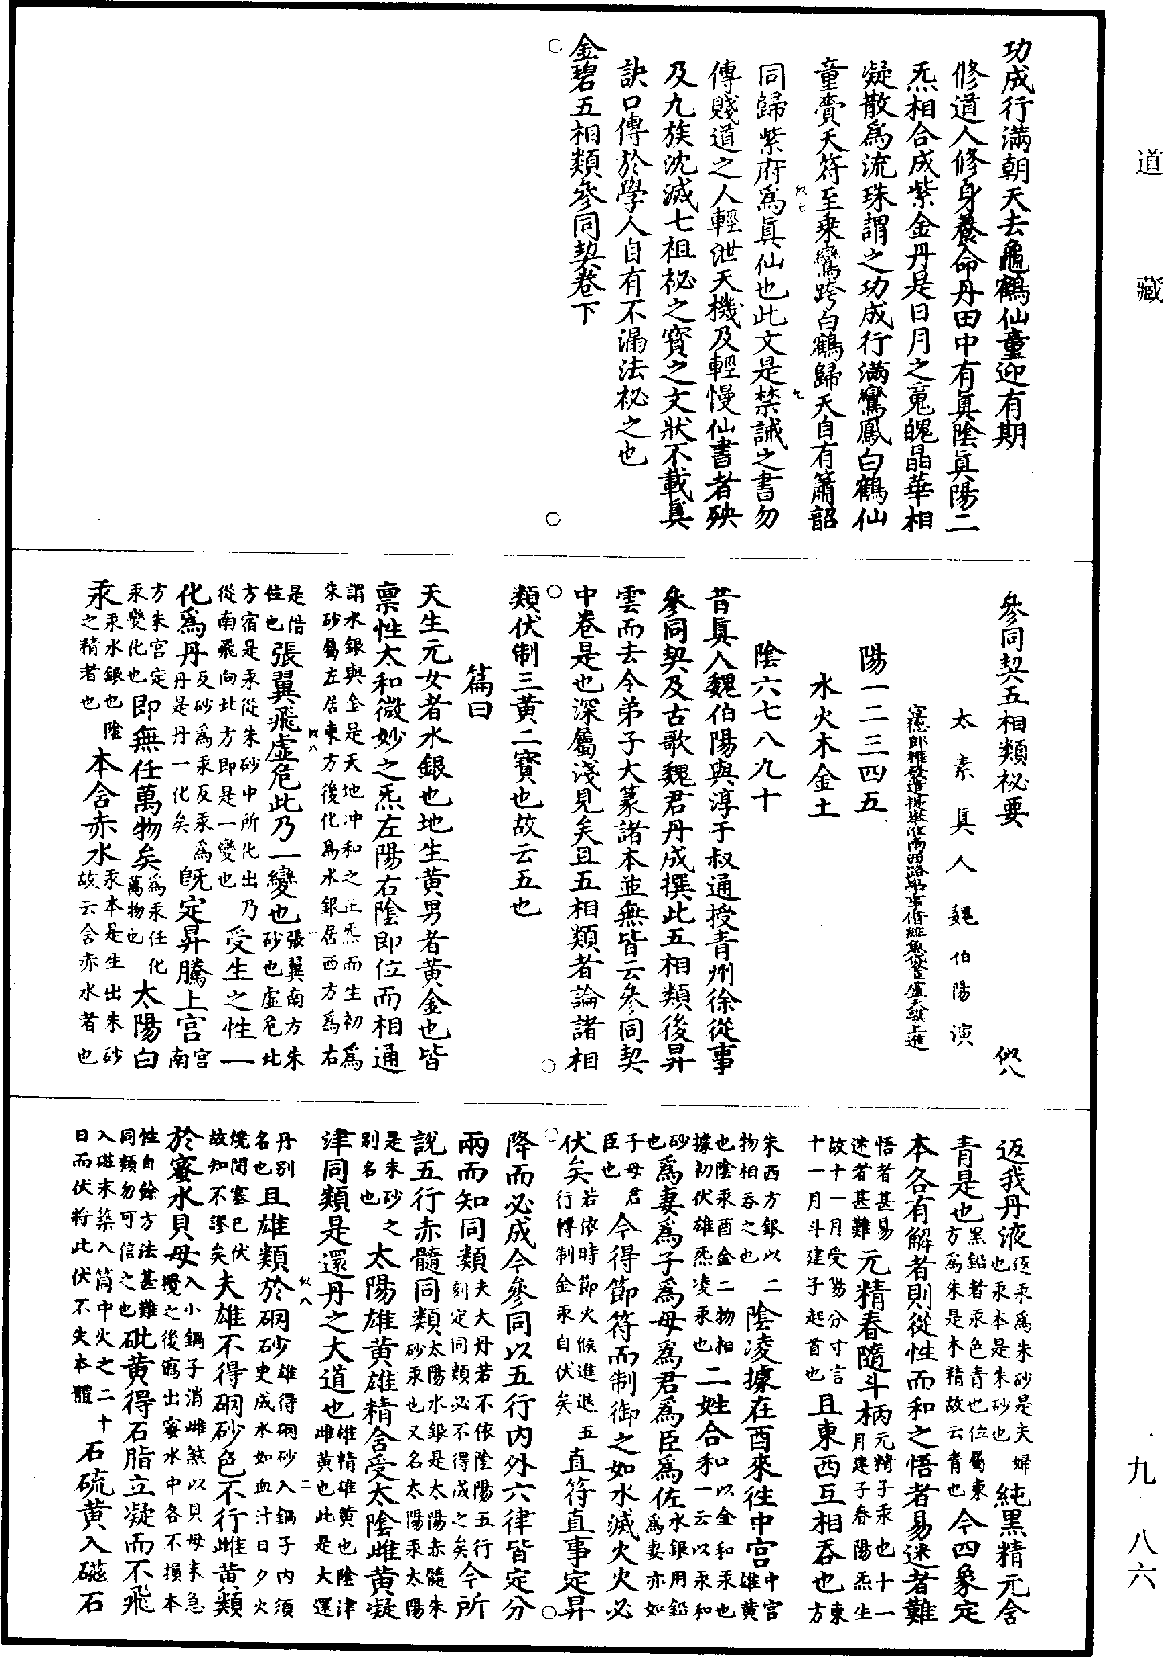 道藏
功成行滿朝天去龜鶴仙童迎有期
修道人修身養命丹田中有真陰真陽二
炁相合成紫金丹是日月之䰟魄晶華相
凝散為流珠謂之功成行滿鸞鳳白鶴仙
童賫天符至乘鸞跨白鶴歸天自有簫韶
同歸紫府為真仙也此文是禁誡之書勿
傳賤道之人輕泄天機及輕慢仙書者殃
及九族沈滅七祖祕之寶之文狀不載真
訣口傳於學人自有不漏法祕之也
金碧五相類參同契卷下
參同契五相類祕要 似八
太素真人魏伯陽演
陽一二三四五
水火木金土
陰六七八九十
昔真人魏伯陽與淳于叔通授青州徐從事
參同契及古歌魏君丹成撰此五相類後昇
雲而去今弟子大篆諸本並無皆云參同契
中卷是也深屬淺見矣且五相類者論諸相
類伏制三黃二寶也故云五也
篇曰
天生元女者水銀也地生黃男者黃金也皆
稟性太和微妙之炁左陽右陰即位而相通
謂水銀與金是天地冲和之正炁而生初為
朱砂屬左居東方後化為水銀居西方為右
是悟
位也
張翼飛虛危此乃一變也
張翼南方朱
砂也虛危北
方宿是汞從朱砂中所化出乃
從南飛向北方即是一變也
受生之性一
化為丹
反砂為汞反汞為
丹是丹一化矣
既定昇騰上宮
宮
南
方朱宮定
汞變化也
即無任萬物矣
為汞任化
萬物也
太陽白
汞
汞水銀也陰
之精者也
本含赤水
汞本是生出朱砂
故云含赤水者也
返我丹液
返汞為朱砂是夫婦
也汞本是朱砂也
純黑精元含
青是也
黑鉛者汞色青也位屬東
方為朱是木精故云青也
今四象定
本各有解者則從性而和之悟者易迷者難
悟者甚易
迷者甚難
元精春隨斗柄
元精子汞也十一
月建子春陽炁生
故十一月受易分寸言
十一月斗建子起首也
且東西互相吞也
東
方
朱西方銀以二
物相吞之也
陰凌據在酉來往中宮
中宮
雄黃
也陰汞酉金二物相
據初伏雄炁凌汞也
二姓合和
以金和汞也
一云以汞和
砂水銀用鉛
也
為妻為子為母為君為臣為佐
為妻亦如
子母君
臣也
今得節符而制御之如水滅火火必
伏矣
若依時節火候進退五
行得制金汞自伏矣
直符直事定昇
降而必成今參同以五行內外六律皆定分
兩而知同類
夫大丹若不依陰陽五行
刻定同類必不得成之矣
今所
說五行赤髓同類
太陽水銀是太陽赤髓朱
砂汞也又名太陽汞太陽
是朱砂之
別名也
太陽雄黃雄精含受太陰雌黃凝
津同類是還丹之大道也
雄精雄黃也陰津
雌黃也此是大還
丹別
名也
且雄類於硇砂
雄得硇砂入鍋子內須
硇石史成水如血汁日夕火
燒閉塞已伏
故知不謬矣
夫雄不得硇砂色不行雌黃類
於蜜水貝母
入小鍋子消雌煞以貝母末急
攪之後瀉出蜜水中各不損本
性自餘方法甚難
同類勿可信之也
砒黃得石脂立凝而不飛
入磁末藥入筒中火之二十
日而伏將此伏不失本體
石硫黃入磁石
九 八六